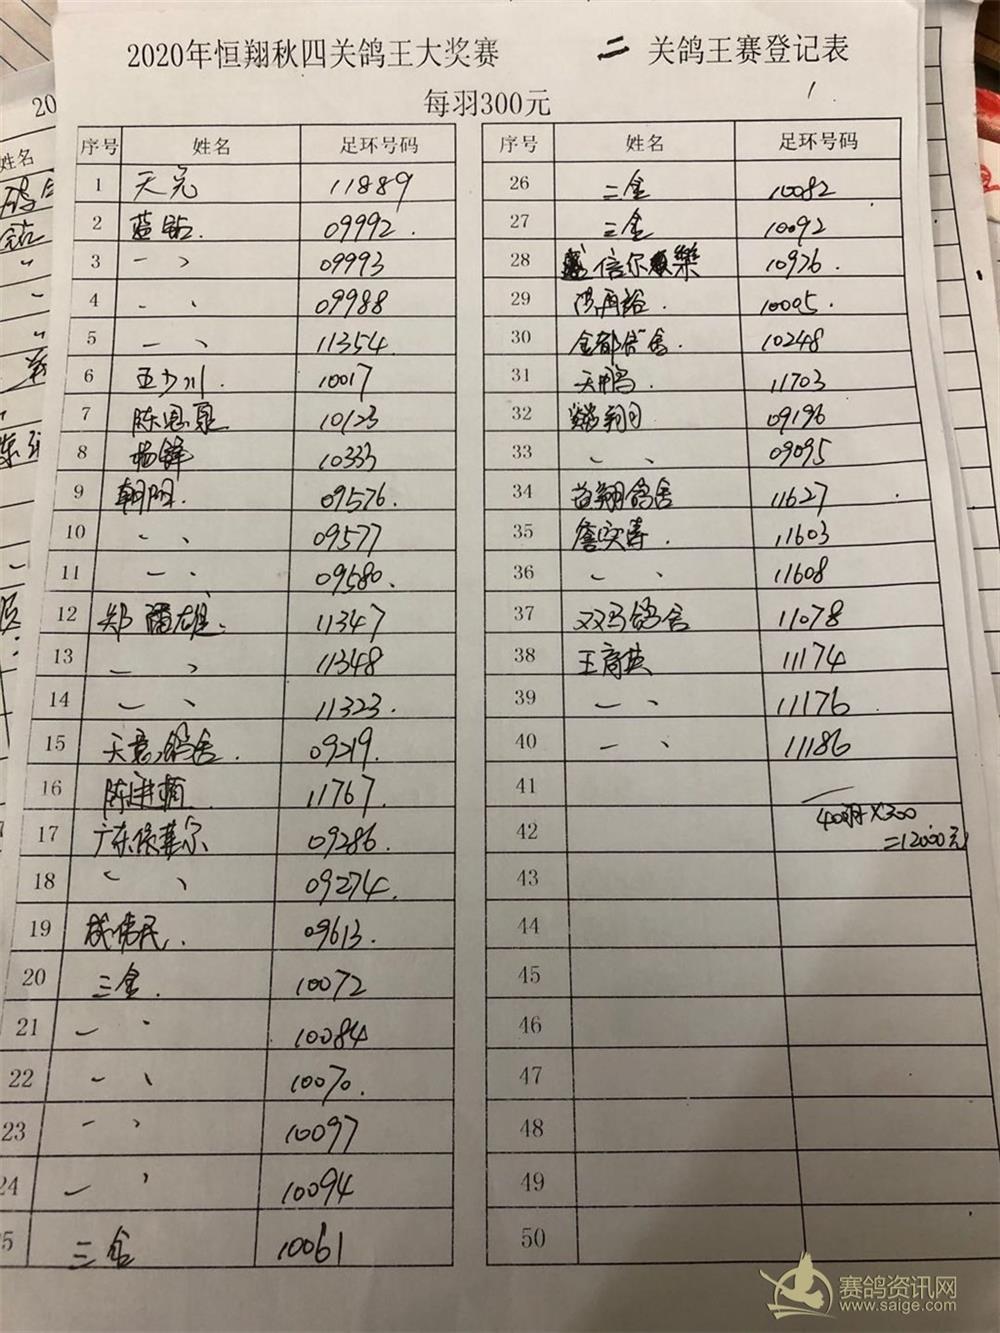 2020年恒翔秋四关鸽王大奖赛 二 关鸽王赛登记表
每羽300元 1
序号 姓名 足环号码
1 天元 11889
2 蓝钻. 09992.
3 〃 09993
4 〃 09988
5 〃 11354.
6 王少川. 10017
7 陈恩泉 10123
8 杨锋 10333
9 朝阳. 09576.
10 〃 09577
11 〃 09580.
12 郑 雄. 11347
13 〃 11348
14 〃 11323.
15 天意鸽舍. 09219.
16 陈进 11767.
17 广东 尔 09286.
18 〃 09274.
19 成伟民. 09613.
20 三金. 10072
21 〃 10084
22 〃 10070.
23 〃 10097
24 〃 10094
5 三金 10061
序号 姓名 足环号码
26 三金 10082
27 三金 10092
28 信尔 樂 10926
29 再裕. 10005.
30 金都 舍. 10248
31 天鹏. 11703
32 翔 09196
33 〃 09095
34 益翔鸽舍 11627
35 詹 寿. 11603
36 〃 11608
37 双马鸽舍 11078
38 王商英 11174
39 〃 11176
40 〃 11186
41
42 40羽×300
=12000元
43
44
45
46
47
48
49
50
20
姓名
赛鸽资讯网
www.saige.com